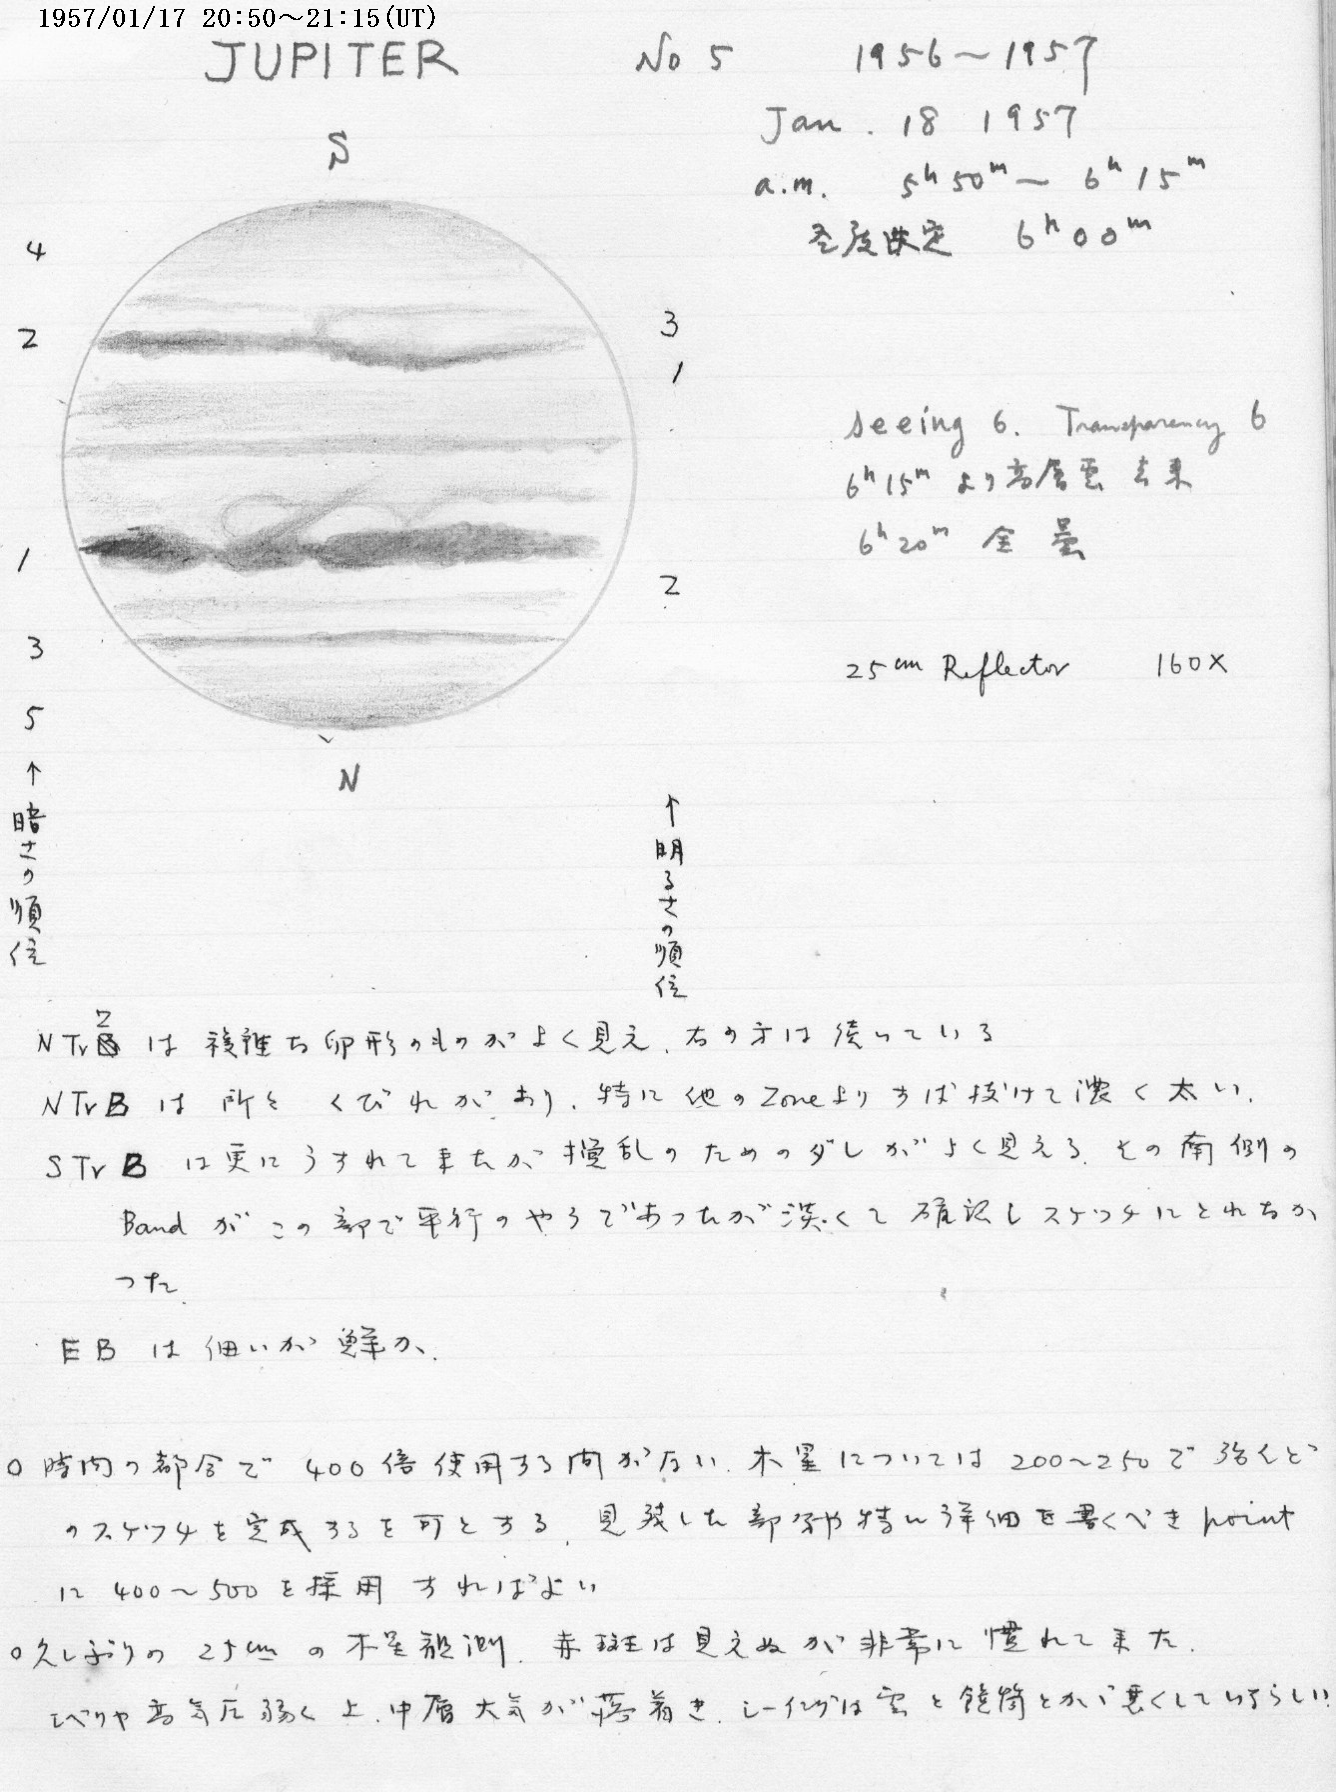 1957/01/17 20:50~21:15(UT)
JUPITER No 5 1956~1957
Jan. 18 1957
a.m. 5h 50m ~ 6h 15m
決定 6h 00m
S
4
2
3
1
seeing 6. Transparency 6
6h 15m より高層雲 去来
6h 20m 全曇
1
2
3
25cm Reflector 160X
5
N
↑暗さの順位
↑明るさの順位
NTrZ は 複雑な卵形のものがよく見え、右の方は続いている
NTrB は 所々 くびれがあり、特に他のZoneよりずば抜けて濃く太い.
STrB は更にうすれて来たが擾乱のためのダレがよく見える. その南側の
Band がこの部で平行のやうであったが淡くて確認しスケッチにとれなか
った.
EB は細いが鮮か.
○時間の都合で 400倍使用する間がない. 木星については200~250で殆んど
のスケッチを完成するを可とする. 見残した部分や特に詳細を書くべき point
に 400~500を採用すればよい
○久しぶりの 25cm の木星観測. 赤斑は見えぬが非常に慣れて来た.
シベリヤ高気圧弱く上.中層大気が落着き、シーイングは雲と鏡筒とが悪くしているらしい